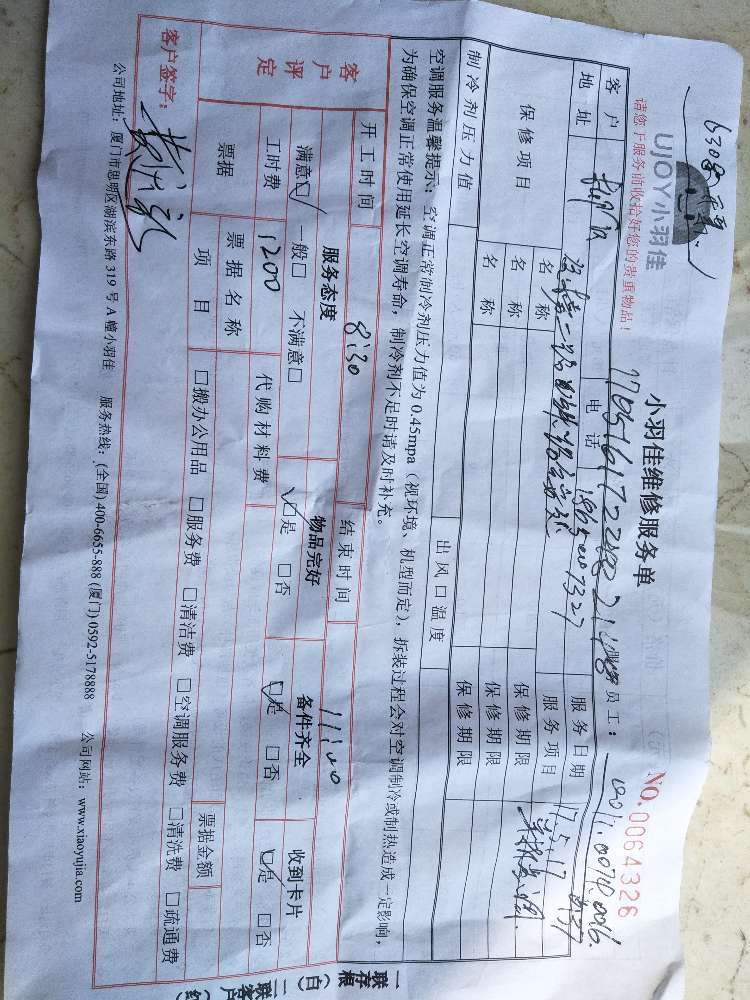 UJOY小羽佳
小羽佳维修服务单
NO. 0064326
请您于服务前收拾好您的贵重物品！
员工：
客户
电话
服务日期
17.5.17
地址
服务项目
保修项目
名称
保修期限
名称
保修期限
名称
保修期限
制冷剂压力值
出风口温度
空调服务温馨提示：空调正常制冷剂压力值为 0.45mpa（视环境、机型而定），拆装过程会对空调制冷或制热造成一定影响，
为确保空调正常使用延长空调寿命，制冷剂不足时请及时补充。
开工时间 8:30 结束时间 11:00
客户评定
服务态度 物品完好 备件齐全 收到卡片
满意☑ 一般□ 不满意□ ☑是 □否 ☑是 □否 ☑是 □否
工时费 1200 代购材料费
票据 票据名称 票据金额
项目 □搬办公用品 □服务费 □清洁费 □空调服务费 □清洗费 □疏通费
客户签字：
公司地址：厦门市思明区湖滨东路 319 号 A 幢小羽佳 服务热线：(全国) 400-6655-888 (厦门) 0592-5178888 公司网站：www.xiaoyujia.com
一联存根（白）二联客户（红